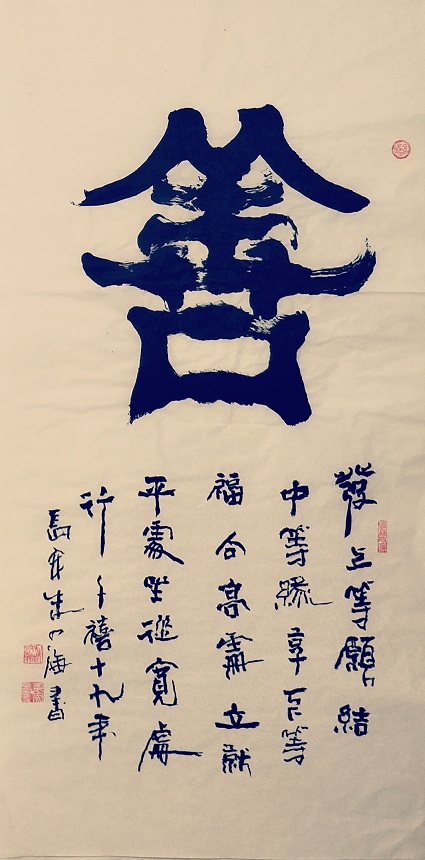 善
發上等願結
中等緣享下等
福 高處立就
平處坐從寬處
行 千禧十九年
海書